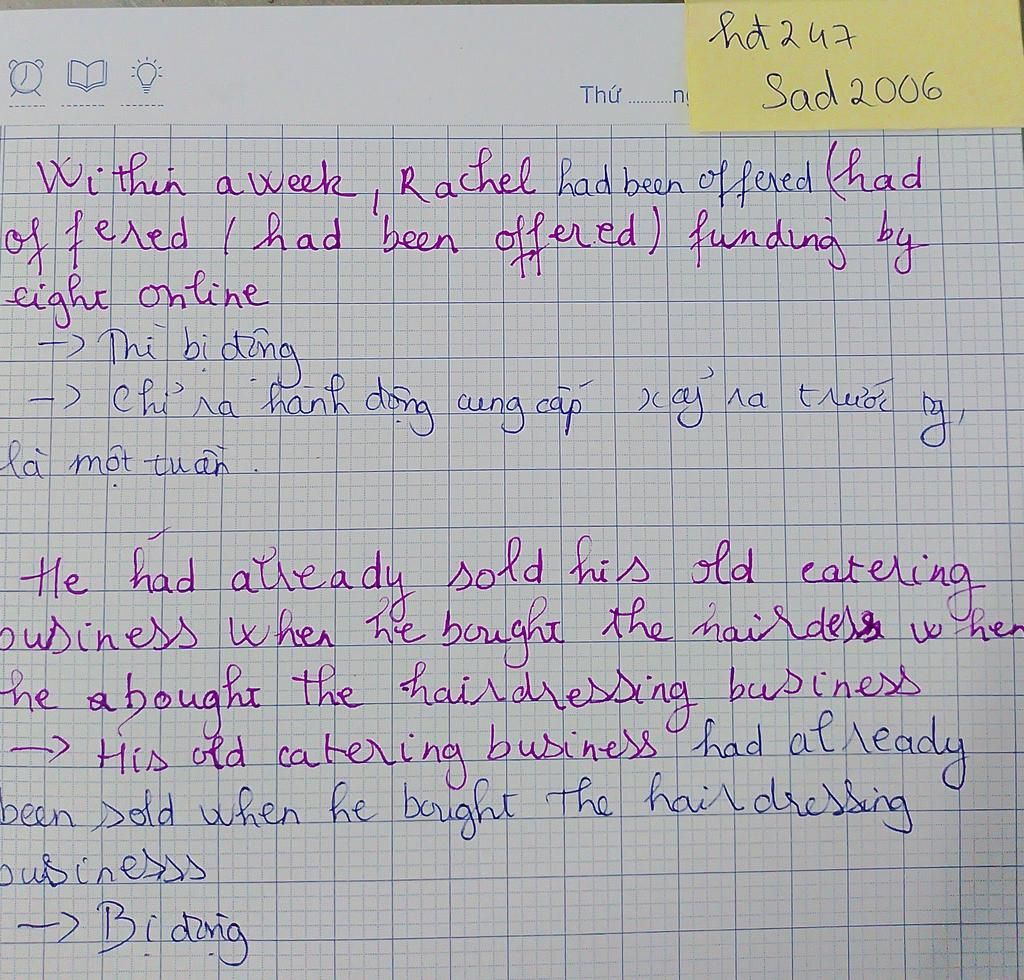 hđ247
Sad2006
Thứ ..........n
Within a week, Rachel had been offered (had
offered / had been offered) funding by
eight online
-> Thì bị động
-> Chỉ ra hành động cung cấp xảy ra trước
là một tuần.
He had already sold his old catering
business when he bought the when
he bought the hairdressing business
-> His old catering business had already
been sold when he bought the hairdressing
businesss
-> Bị động